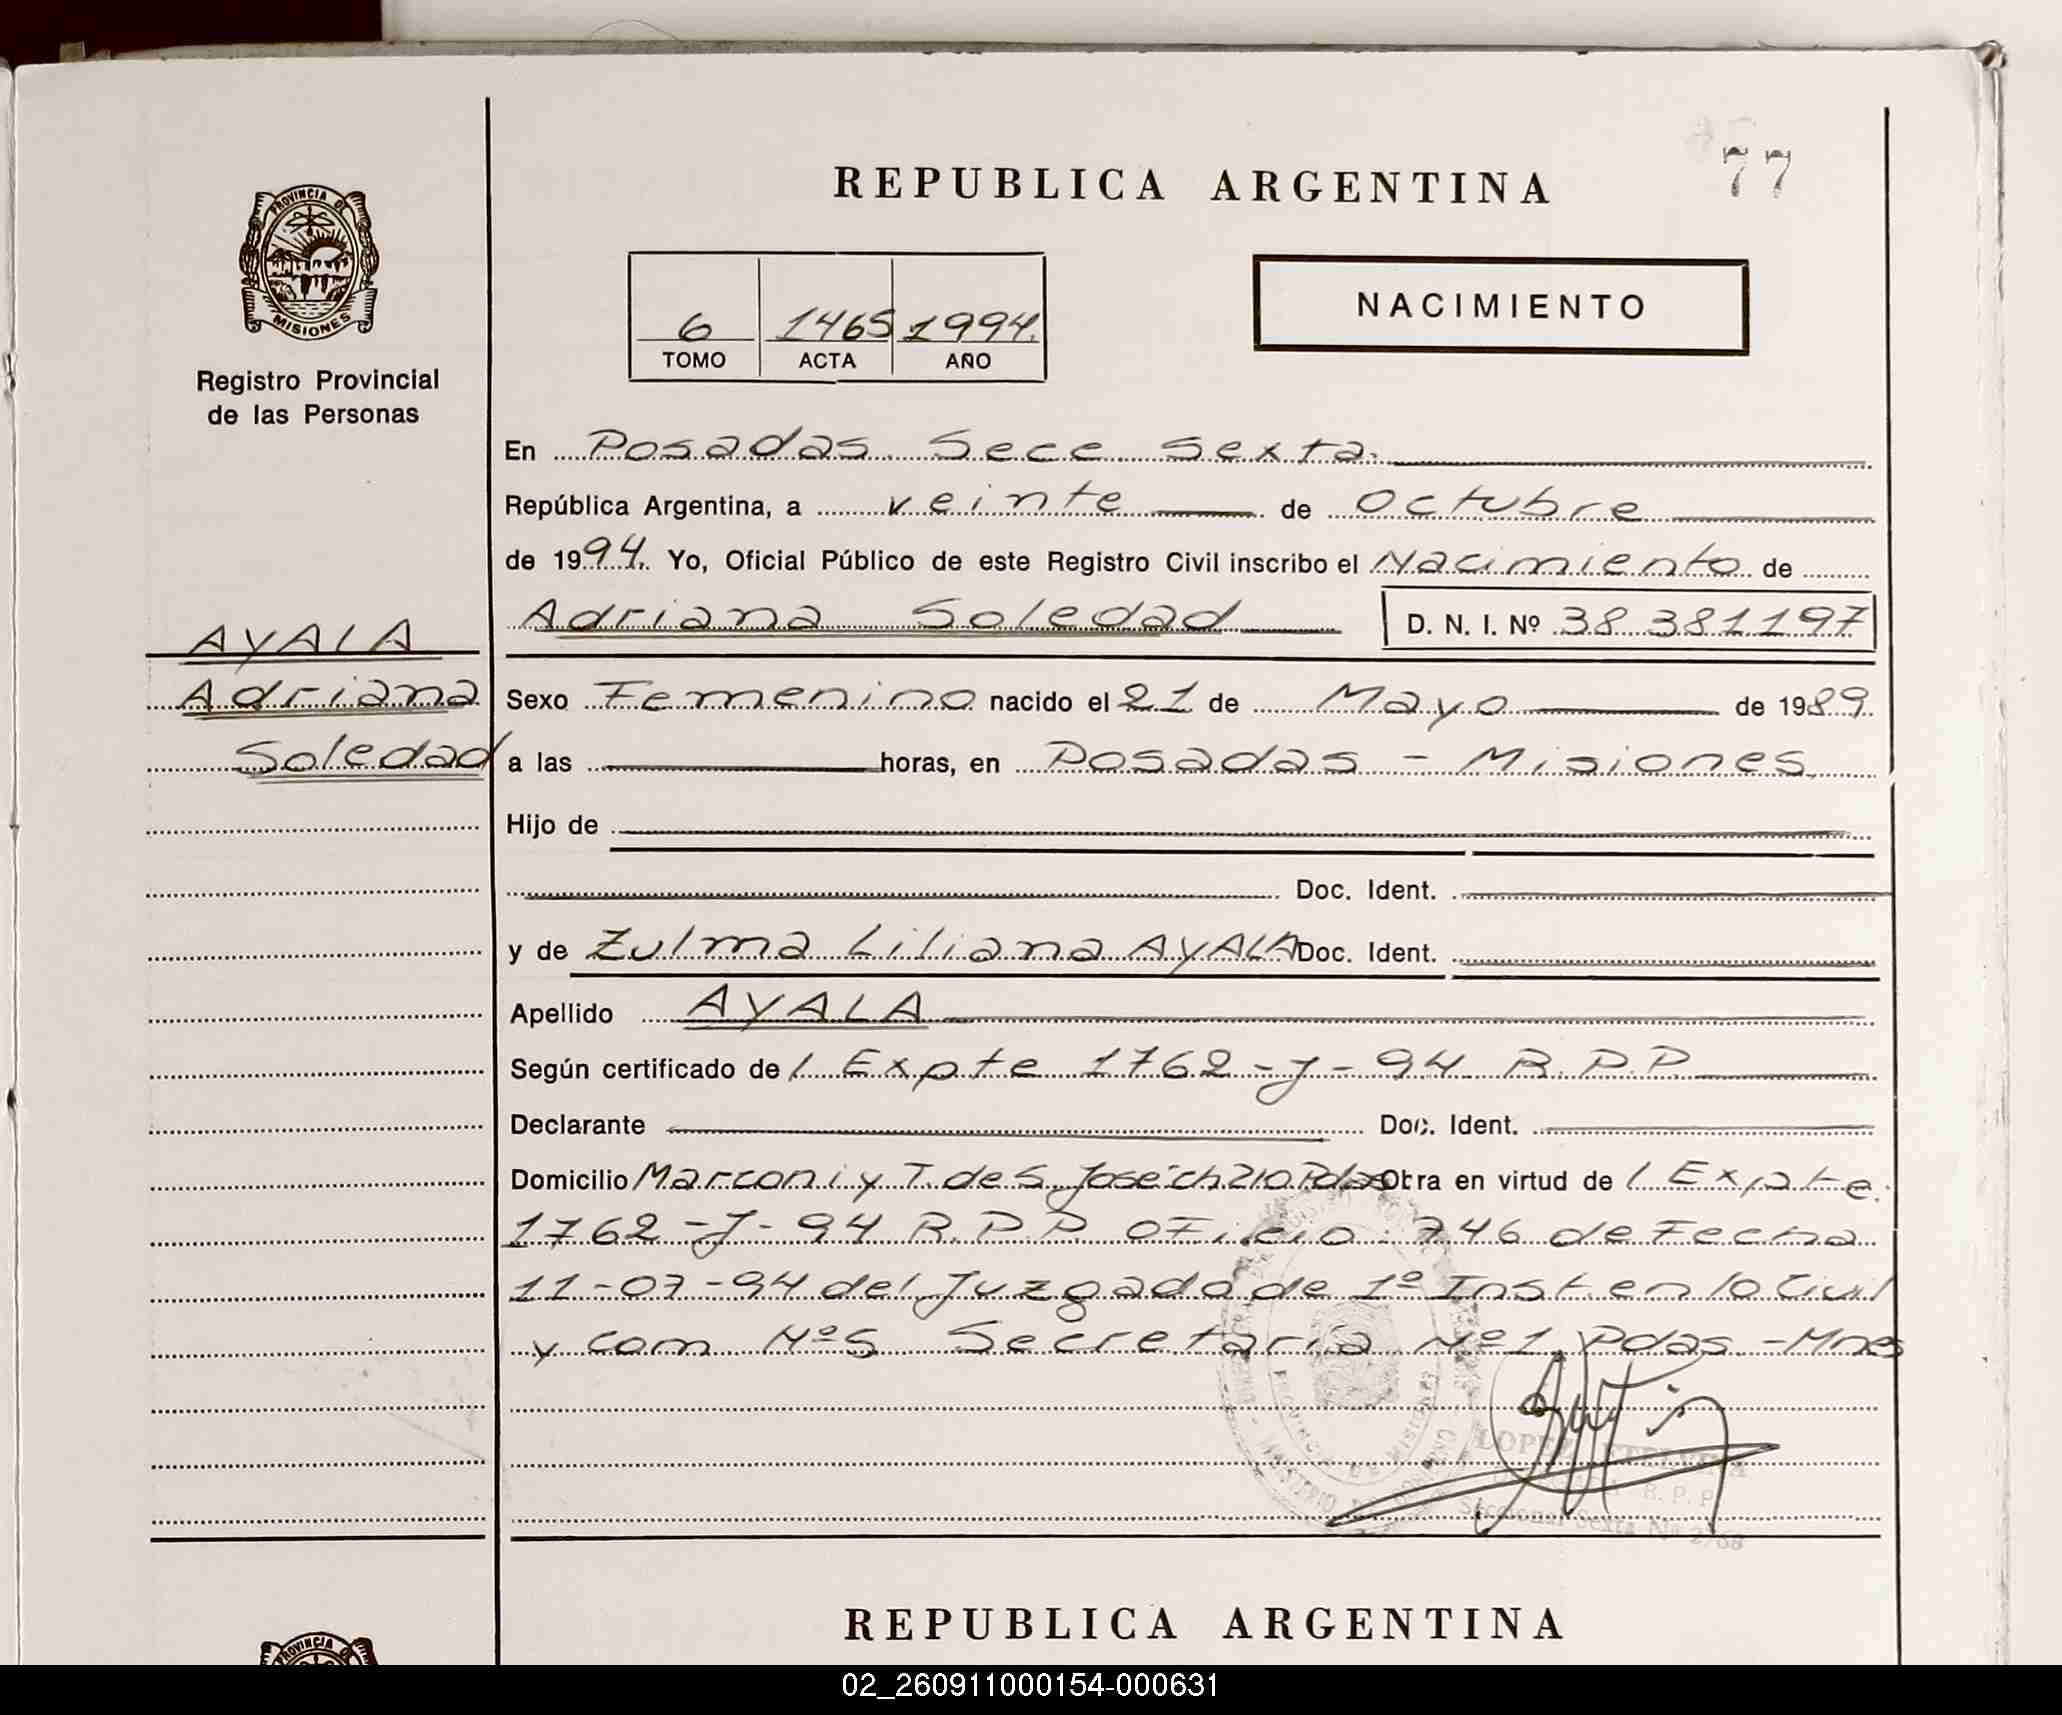 REPUBLICA ARGENTINA
77
PROVINCIA DE
MISIONES
Registro Provincial
de las Personas
6 1465 1994.
TOMO ACTA AÑO
NACIMIENTO
En Posadas Secc Sexta.
República Argentina, a veinte de Octubre
de 1994. Yo, Oficial Público de este Registro Civil inscribo el Nacimiento de
Adriana Soledad D. N. I. Nº 38 381197
AYALA
Adriana
Soledad
Sexo Femenino nacido el 21 de Mayo de 1989
a las horas, en Posadas - Misiones
Hijo de
Doc. Ident.
y de Zulma Liliana AYALA Doc. Ident.
Apellido AYALA
Según certificado de / Expte 1762 - J - 94 R.P.P.
Declarante Doc. Ident.
Domicilio Marconi y T. de S. José ch 210 Pdas Otra en virtud de / Expte.
1762 - J - 94 R.P.P. OFicio 746 de Fecha
11-07-94 del Juzgado de 1º Inst. en lo Civil
y com Nº5 Secretaría Nº1 Pdas. - Mnes
PROVINCIA DE MISIONES
LOPEZ ETELVINA
R. P. P.
Seccional Sexta Nº 2768
REPUBLICA ARGENTINA
PROVINCIA DE
02_260911000154-000631